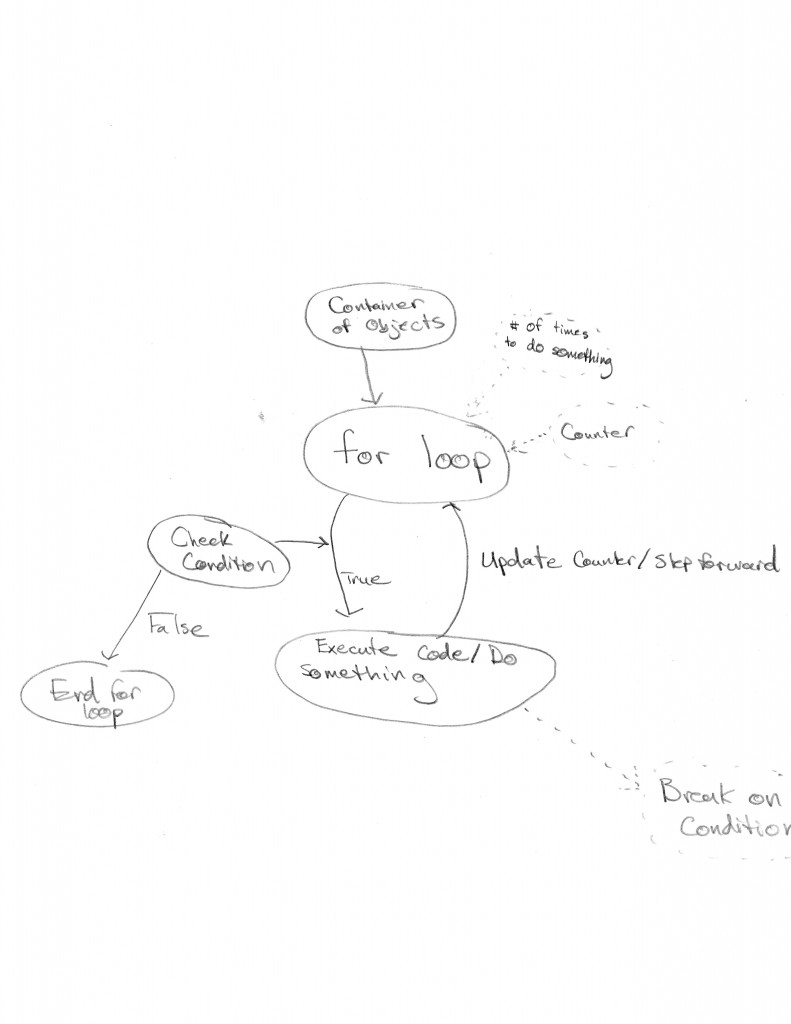 Container
of Objects
# of times
to do something
Counter
for loop
Check
Condition
True
Update Counter/Step forward
False
Execute Code/Do
something
End for
loop
Break on
Condition